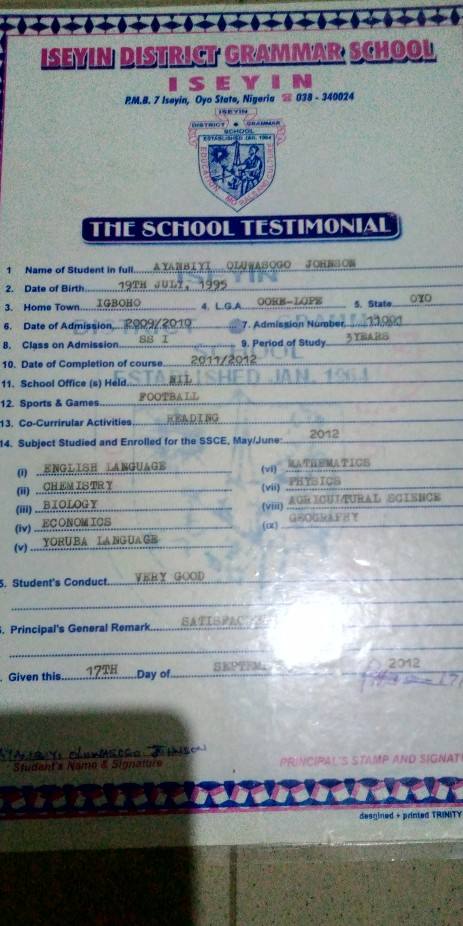 ISEYIN DISTRICT GRAMMAR SCHOOL
ISEYIN
P.M.B. 7 Iseyin, Oyo State, Nigeria ☎ 038 - 340024
ISEYIN
DISTRICT GRAMMAR
SCHOOL
ESTABLISHED JAN. 1964
EDUCATION MORALS AND CULTURE
THE SCHOOL TESTIMONIAL
1 Name of Student in full AYANBIYI OLUWASOGO JOHNSON
2. Date of Birth 19TH JULY, 1995
3. Home Town IGBOHO 4. L.G.A OORE-LOPE 5. State OYO
6. Date of Admission 2009/2010 7. Admission Number 11001
8. Class on Admission SS I 9. Period of Study 3YEARS
10. Date of Completion of course 2011/2012
11. School Office (s) Held NIL
12. Sports & Games FOOTBALL
13. Co-Currirular Activities READING
14. Subject Studied and Enrolled for the SSCE, May/June: 2012
(i) ENGLISH LANGUAGE (vi) MATHEMATICS
(ii) CHEMISTRY (vii) PHYSICS
(iii) BIOLOGY (viii) AGRICULTURAL SCIENCE
(iv) ECONOMICS (ix) GEOGRAPHY
(v) YORUBA LANGUAGE
5. Student's Conduct VERY GOOD
. Principal's General Remark
. Given this 17TH Day of 2012
AYANBIYI OLUWASOGO JOHNSON
Student's Name & Signature PRINCIPAL'S STAMP AND SIGNAT
desgined + printed TRINITY